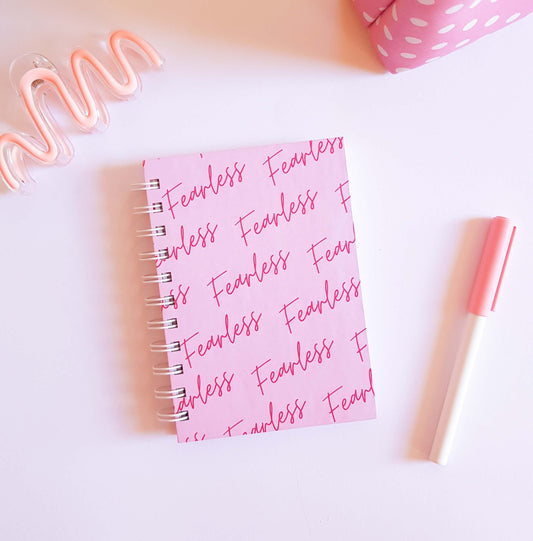 Fearless Fearless
arless Fearless F
ss Fearless Fear
Fearless Fearless
arless Fearless F
ss Fearless Fearl